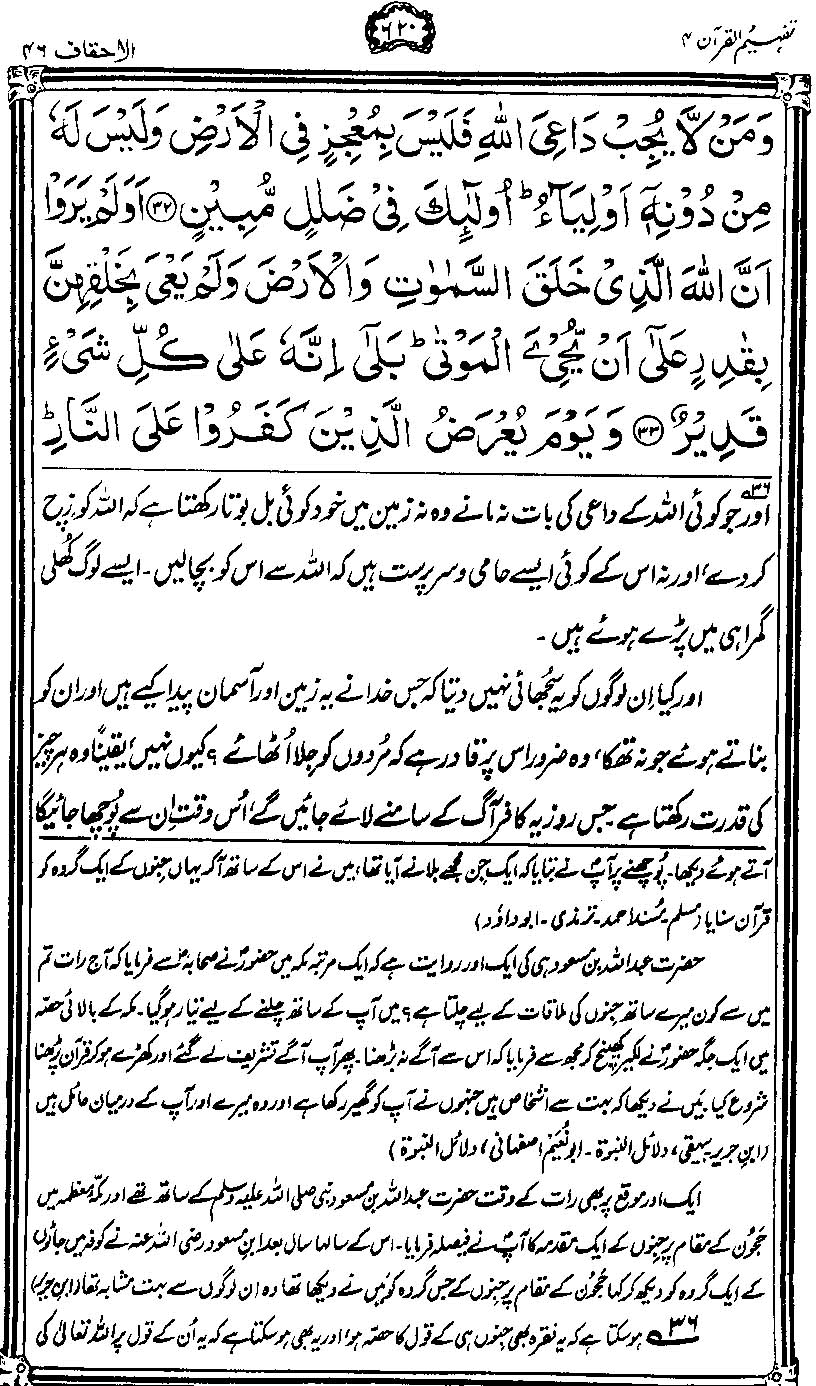 تفہیم القرآن ۴
۶۲۰
الاحقاف ۴۶
وَمَنْ لَّا يُجِبْ دَاعِيَ اللّٰهِ فَلَيْسَ بِمُعْجِزٍ فِي الْاَرْضِ وَلَيْسَ لَهٗ
مِنْ دُوْنِهٖٓ اَوْلِيَآءُ ؕ اُولٰٓئِكَ فِيْ ضَلٰلٍ مُّبِيْنٍ ﴿۳۲﴾ اَوَلَمْ يَرَوْا
اَنَّ اللّٰهَ الَّذِيْ خَلَقَ السَّمٰوٰتِ وَالْاَرْضَ وَلَمْ يَعْيَ بِخَلْقِهِنَّ
بِقٰدِرٍ عَلٰٓى اَنْ يُّحْيِۦَ الْمَوْتٰى ؕ بَلٰٓى اِنَّهٗ عَلٰى كُلِّ شَيْءٍ
قَدِيْرٌ ﴿۳۳﴾ وَيَوْمَ يُعْرَضُ الَّذِيْنَ كَفَرُوْا عَلَى النَّارِ ؕ
۳۶؎ اور جو کوئی اللہ کے داعی کی بات نہ مانے وہ نہ زمین میں خود کوئی بل بوتا رکھتا ہے کہ اللہ کو زِچ
کر دے، اور نہ اس کے کوئی ایسے حامی و سرپرست ہیں کہ اللہ سے اس کو بچا لیں۔ ایسے لوگ کُھلی
گمراہی میں پڑے ہوئے ہیں۔
اور کیا اِن لوگوں کو یہ سُجھائی نہیں دیتا کہ جس خدا نے یہ زمین اور آسمان پیدا کیے ہیں اور ان کو
بناتے ہوئے جو نہ تھکا، وہ ضرور اس پر قادر ہے کہ مُردوں کو جِلا اُٹھائے؟ کیوں نہیں، یقیناً وہ ہر چیز
کی قدرت رکھتا ہے۔ جس روز یہ کافر آگ کے سامنے لائے جائیں گے، اُس وقت اِن سے پُوچھا جائیگا
آتے ہوئے دیکھا۔ پُوچھنے پر آپؐ نے بتایا کہ ایک جن مجھے بلانے آیا تھا، میں نے اس کے ساتھ آ کر یہاں جنوں کے ایک گروہ کو
قرآن سنایا (مسلم۔ مُسند احمد۔ ترمذی۔ ابوداؤد)
حضرت عبداللہ بن مسعود ہی کی ایک اور روایت ہے کہ ایک مرتبہ مکہ میں حضورؐ نے صحابہؓ سے فرمایا کہ آج رات تم
میں سے کون میرے ساتھ جنوں کی ملاقات کے لیے چلتا ہے؟ میں آپ کے ساتھ چلنے کے لیے تیار ہو گیا۔ مکہ کے بالائی حصّہ
میں ایک جگہ حضورؐ نے لکیر کھینچ کر مجھ سے فرمایا کہ اس سے آگے نہ بڑھنا۔ پھر آپ آگے تشریف لے گئے اور کھڑے ہو کر قرآن پڑھنا
شروع کیا۔ میں نے دیکھا کہ بہت سے اشخاص ہیں جنہوں نے آپ کو گھیر رکھا ہے اور وہ میرے اور آپ کے درمیان حائل ہیں
(ابن جریر بیہقی، دلائل النبوۃ۔ ابونُعَیم اصفہانی، دلائل النبوۃ)
ایک اور موقع پر بھی رات کے وقت حضرت عبداللہ بن مسعود نبی صلی اللہ علیہ وسلم کے ساتھ تھے اور مکۂ معظمہ میں
حَجُون کے مقام پر جنوں کے ایک مقدمہ کا آپؐ نے فیصلہ فرمایا۔ اس کے سالہا سال بعد ابن مسعود رضی اللہ عنہ نے کوفہ میں جاٹوں
کے ایک گروہ کو دیکھ کر کہا حَجُون کے مقام پر جنوں کے جس گروہ کو میں نے دیکھا تھا وہ ان لوگوں سے بہت مشابہ تھا (ابن جریر)
۳۶؎ ہو سکتا ہے کہ یہ فقرہ بھی جنوں ہی کے قول کا حصّہ ہو، اور یہ بھی ہو سکتا ہے کہ یہ اُن کے قول پر اللہ تعالیٰ کی